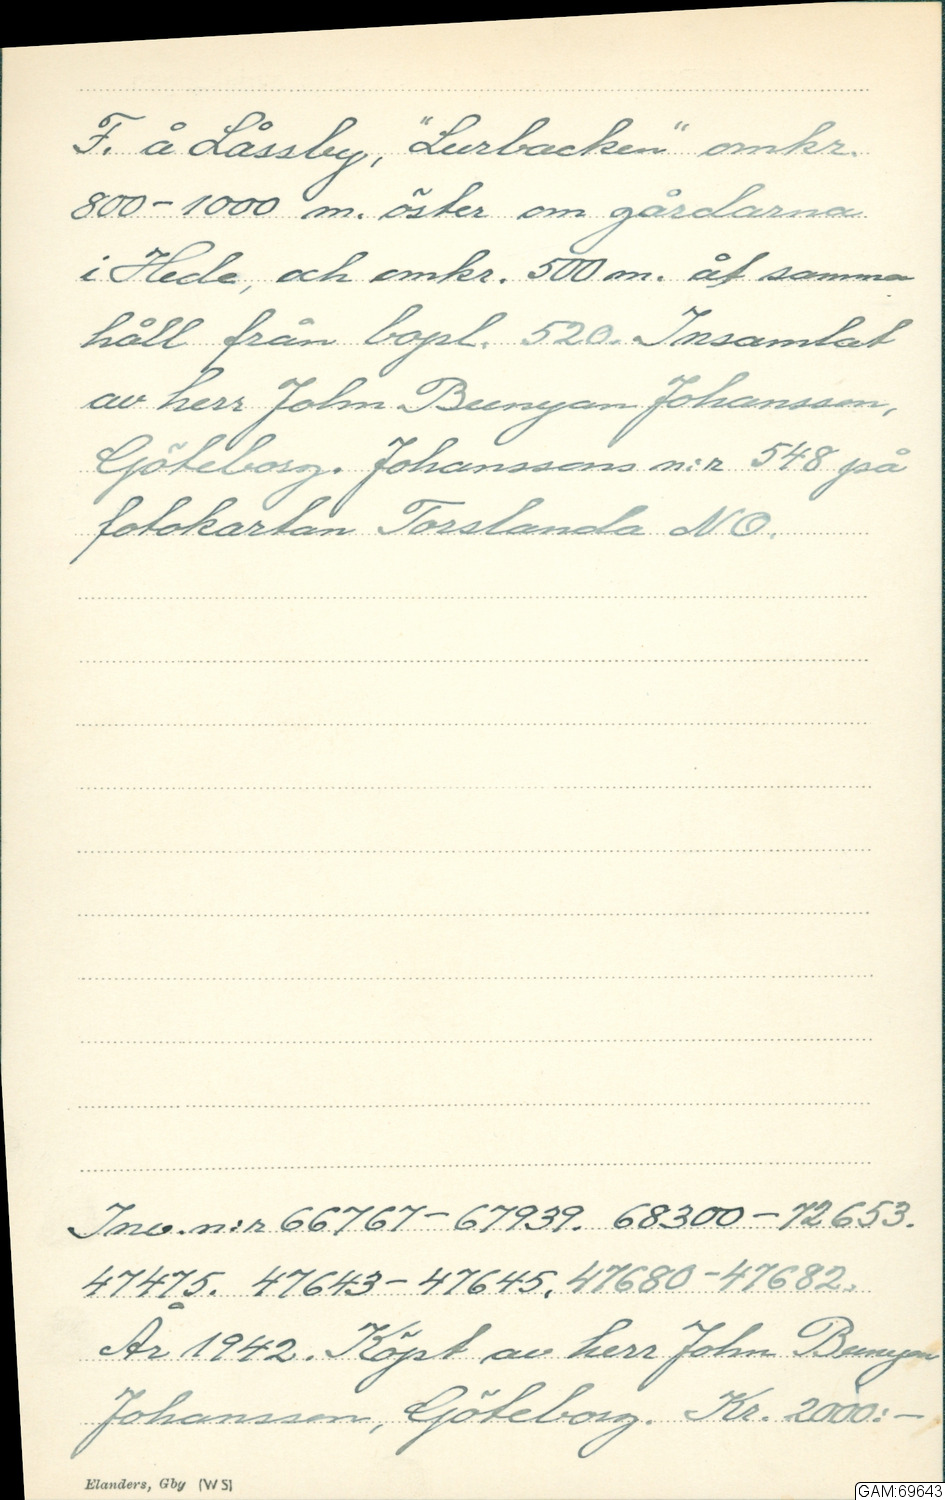 F. å Låssby, "Lurbacken" omkr.
800-1000 m. öster om gårdarna
i Hede, och omkr. 500 m. åt samma
håll från bopl. 520. Insamlat
av herr John Bunyan Johansson,
Göteborg. Johanssons n:r 548 på
fotokartan Torslanda NO.
Inv. n:r 66767-67939. 68300-72653.
47475. 47643-47645. 47680-47682.
År 1942. Köpt av herr John Bunyan
Johansson, Göteborg. Kr. 2000:-
Elanders, Gby (WS)
GAM:69643